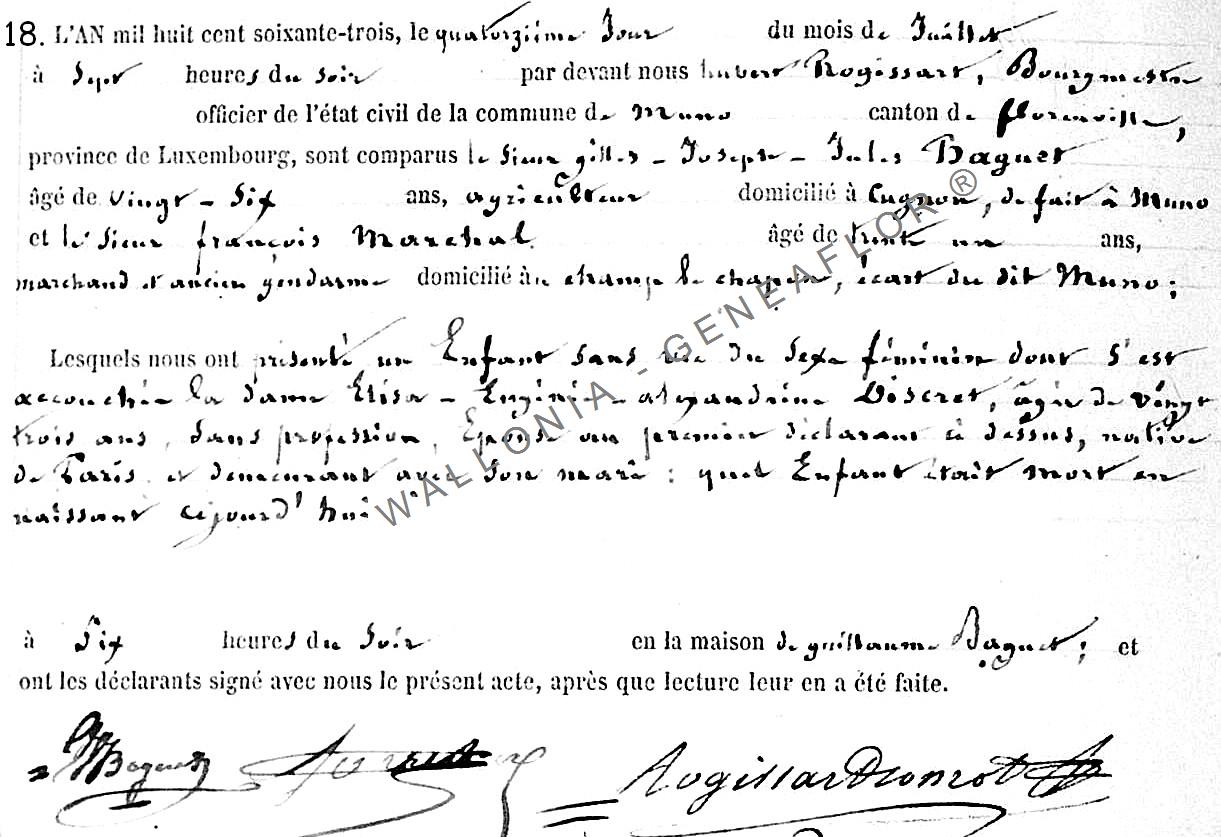 18. L'AN mil huit cent soixante-trois, le quatorzième Jour du mois de Juillet
à Sept heures du soir par devant nous hubert Rogissart, Bourgmestre
officier de l'état civil de la commune de Muno canton de florenville,
province de Luxembourg, sont comparus le Sieur gilles - Joseph - Jules Baguet
âgé de vingt - Six ans, agriculteur domicilié à Cugnon, de fait à Muno
et le Sieur françois Marchal âgé de trente un ans,
marchand et ancien gendarme domicilié à champ le chapon, écart du dit Muno;
Lesquels nous ont présenté un Enfant sans vie du Sexe féminin dont S'est
accouchée la dame Elisa - Eugénie - alexandrine Discret, âgée de vingt
trois ans, Sans profession, Epouse au premier déclarant ci dessus, native
de Paris et demeurant avec Son mari : quel Enfant était mort en
naissant cejourd'hui
à Six heures du Soir en la maison de guillaume Baguet; et
ont les déclarants signé avec nous le présent acte, après que lecture leur en a été faite.
Baguet Rogissart
WALLONIA - GENEAFLOR ®